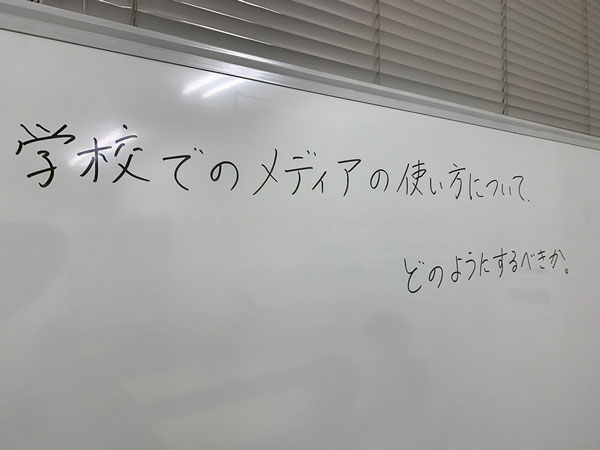 学校でのメディアの使い方について.
どのようにするべきか。